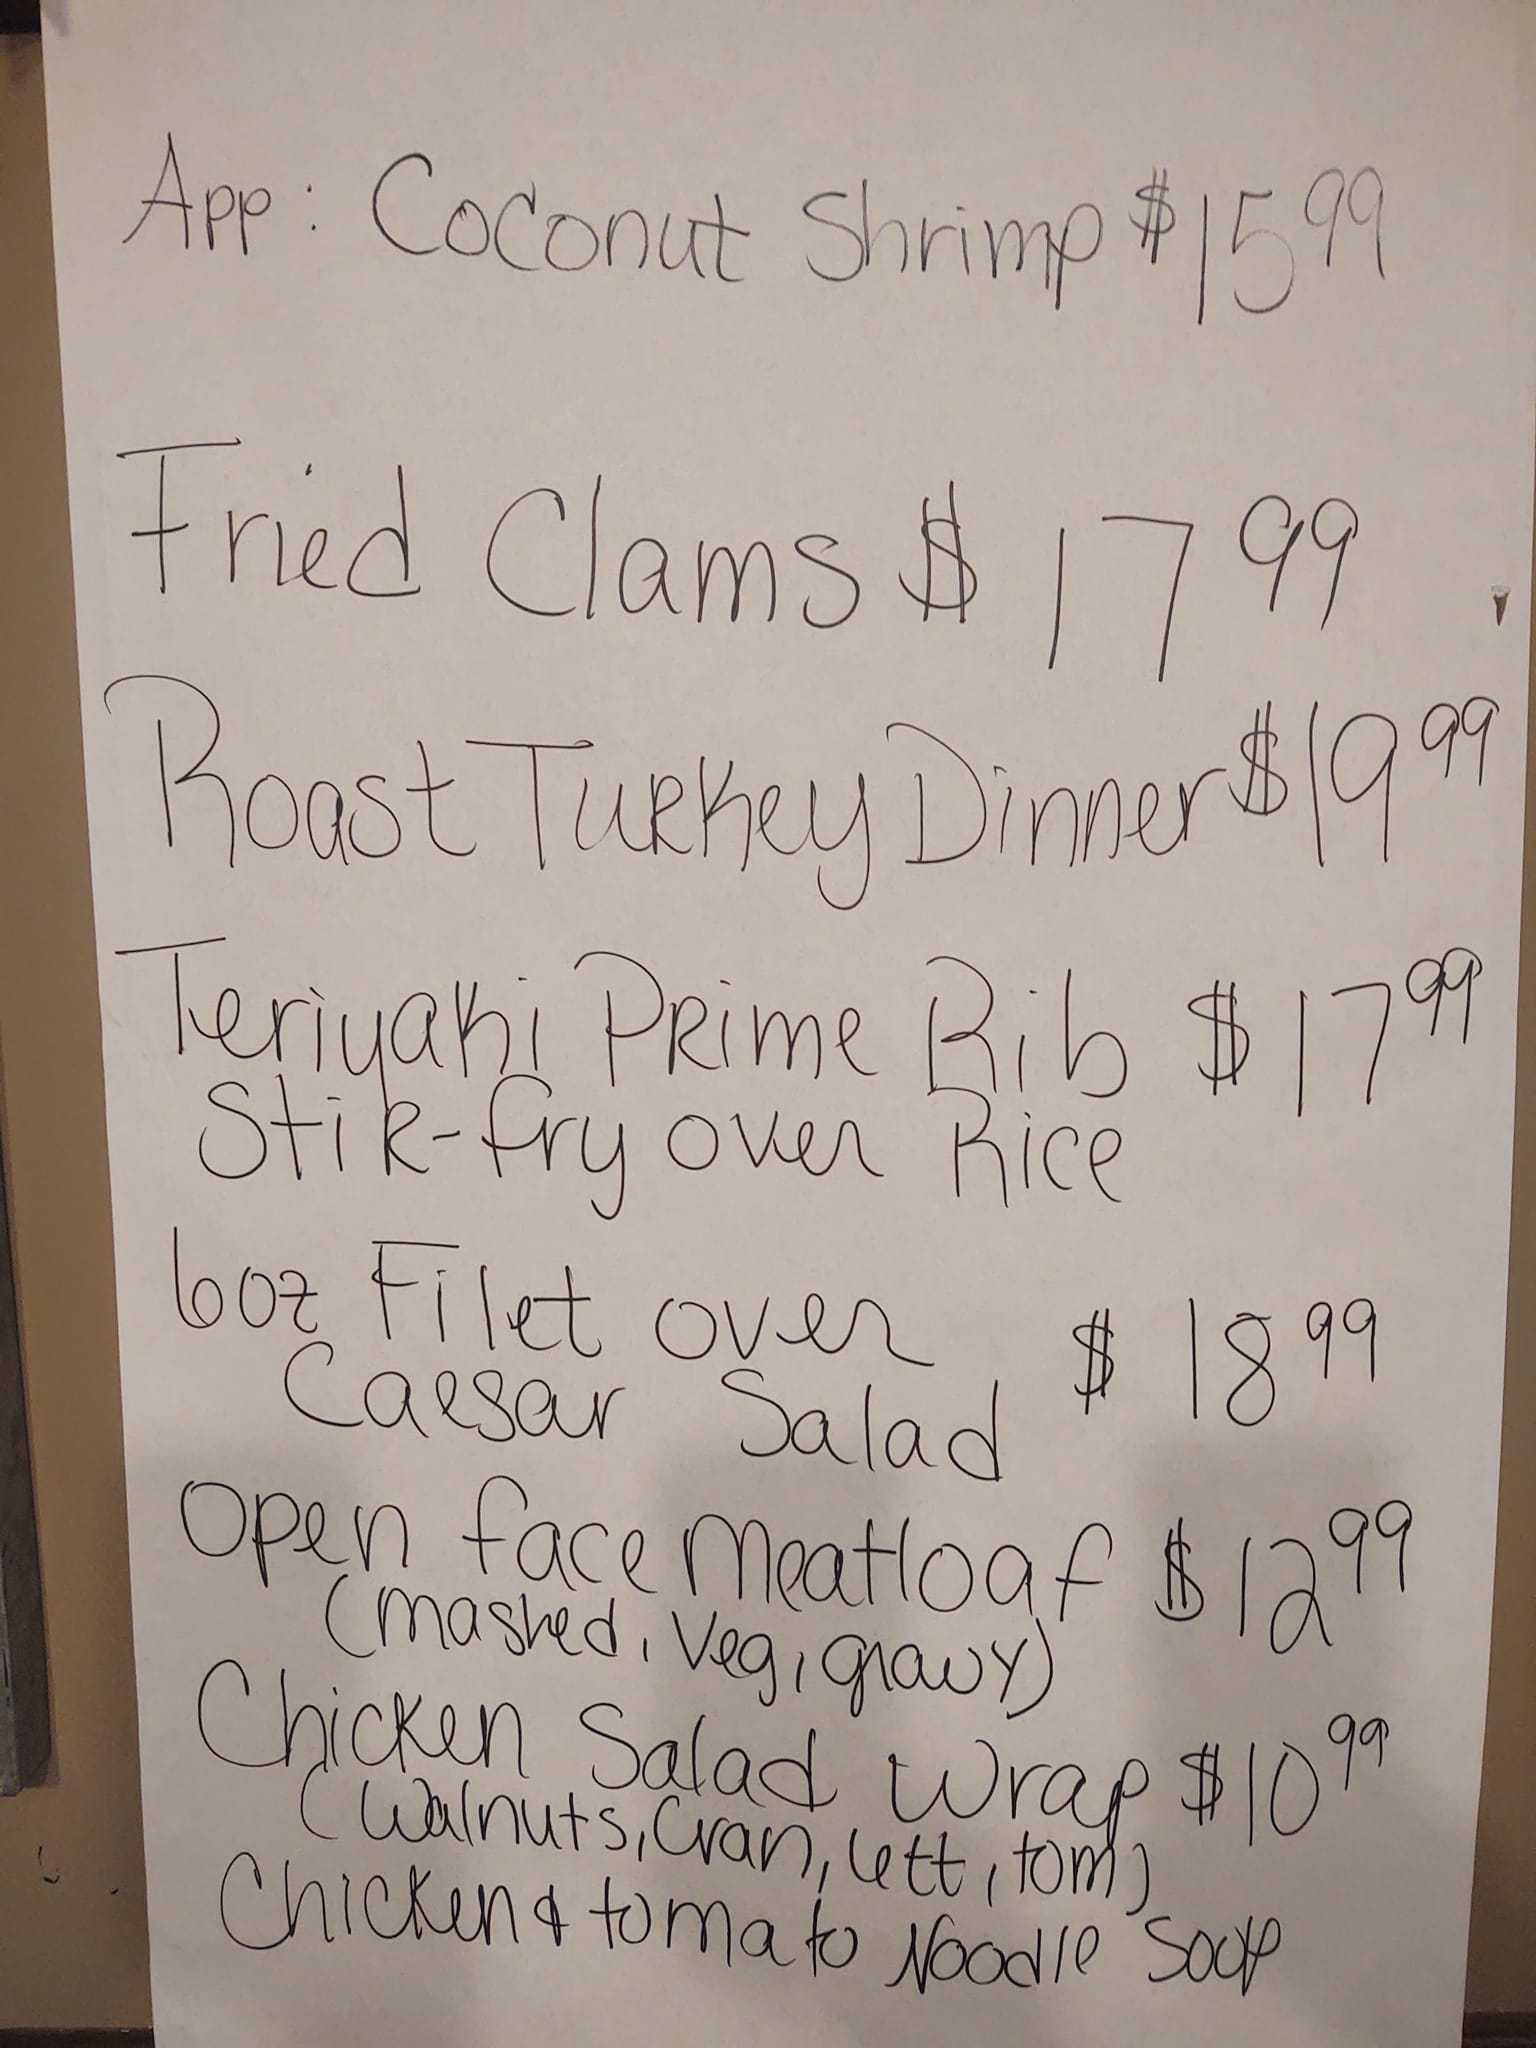 App: Coconut Shrimp $15 99
Fried Clams $17 99
Roast Turkey Dinner $19 99
Teriyaki Prime Rib $17 99
Stir-fry over Rice
6oz Filet over
Caesar Salad $18 99
Open face Meatloaf $12 99
(Mashed, Veg, gravy)
Chicken Salad Wrap $10 99
(Walnuts, Cran, Lett, tom)
Chicken & tomato Noodle Soup